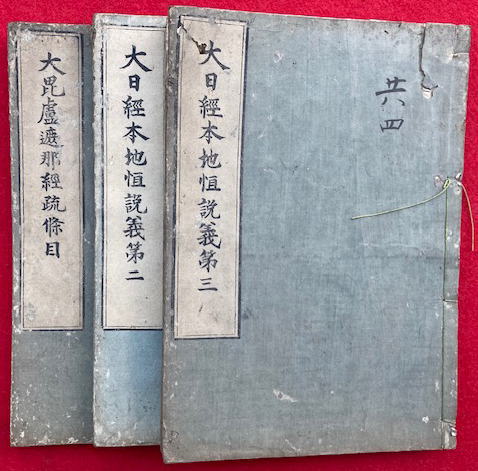 共四
大日經本地恒説義第三
大日經本地恒説義第二
大毘盧遮那經疏條目